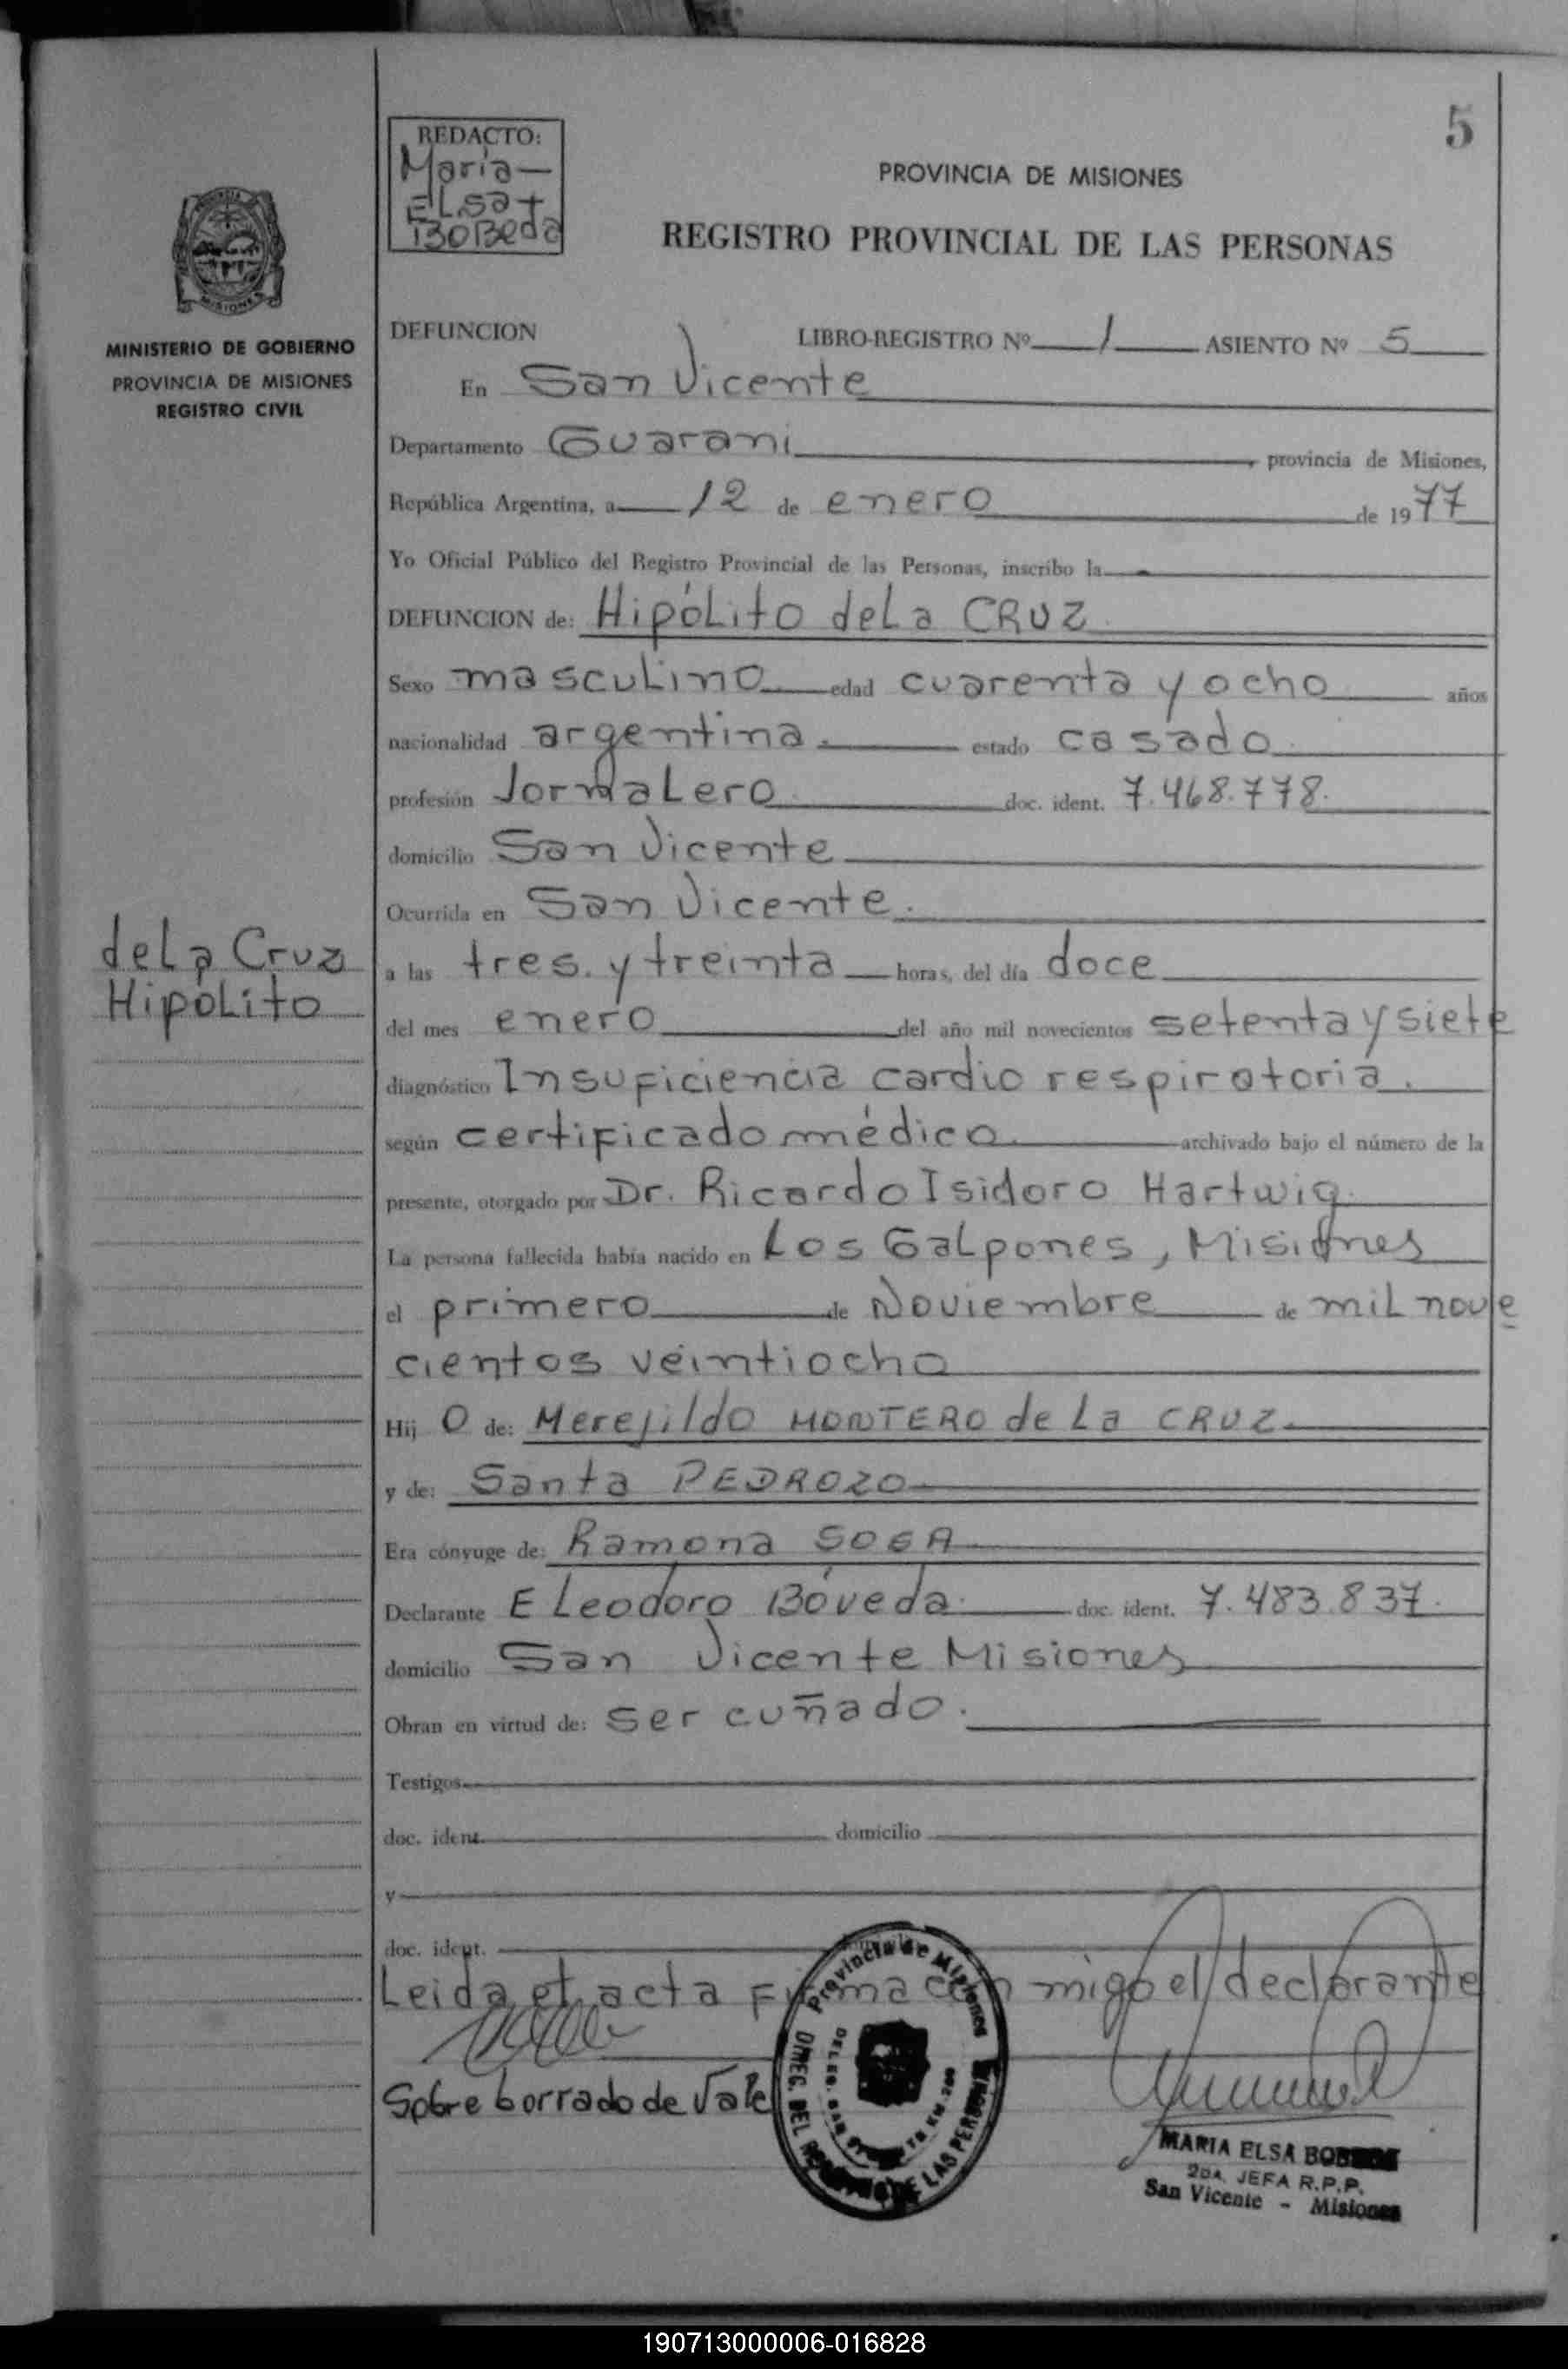 5
REDACTO:
Maria
ELsa
BoBeda
PROVINCIA DE MISIONES
REGISTRO PROVINCIAL DE LAS PERSONAS
MINISTERIO DE GOBIERNO
PROVINCIA DE MISIONES
REGISTRO CIVIL
DEFUNCION LIBRO-REGISTRO Nº 1 ASIENTO Nº 5
En San Vicente
Departamento Guarani, provincia de Misiones,
República Argentina, a 12 de enero de 1977
Yo Oficial Público del Registro Provincial de las Personas, inscribo la
DEFUNCION de: Hipólito de La CRUZ
Sexo masculino edad cuarenta y ocho años
nacionalidad argentina. estado casado
profesión JornaLero doc. ident. 7.468.778.
domicilio San Vicente
Ocurrida en San Vicente.
de La Cruz
Hipólito
a las tres. y treinta horas, del día doce
del mes enero del año mil novecientos setenta y siete
diagnóstico Insuficiencia cardio respiratoria.
según certificado médico archivado bajo el número de la
presente, otorgado por Dr. Ricardo Isidoro Hartwig
La persona fallecida había nacido en Los Galpones, Misiones
el primero de Noviembre de mil nove
cientos veintiocho
Hij o de: Merejildo MONTERO de La CRUZ
y de: Santa PEDROZO
Era cónyuge de: Ramona SOSA
Declarante ELeodoro Bóveda doc. ident. 7.483.837.
domicilio San Vicente Misiones
Obran en virtud de: ser cuñado.
Testigos
doc. ident. domicilio
y
doc. ident.
Leida el acta firma con migo el declarante
Sobre borrado de Vale
Provincia de Misiones
DIREC. DEL DE LAS
MARIA ELSA
2DA. JEFA R.P.P.
San Vicente - Misiones
190713000006-016828